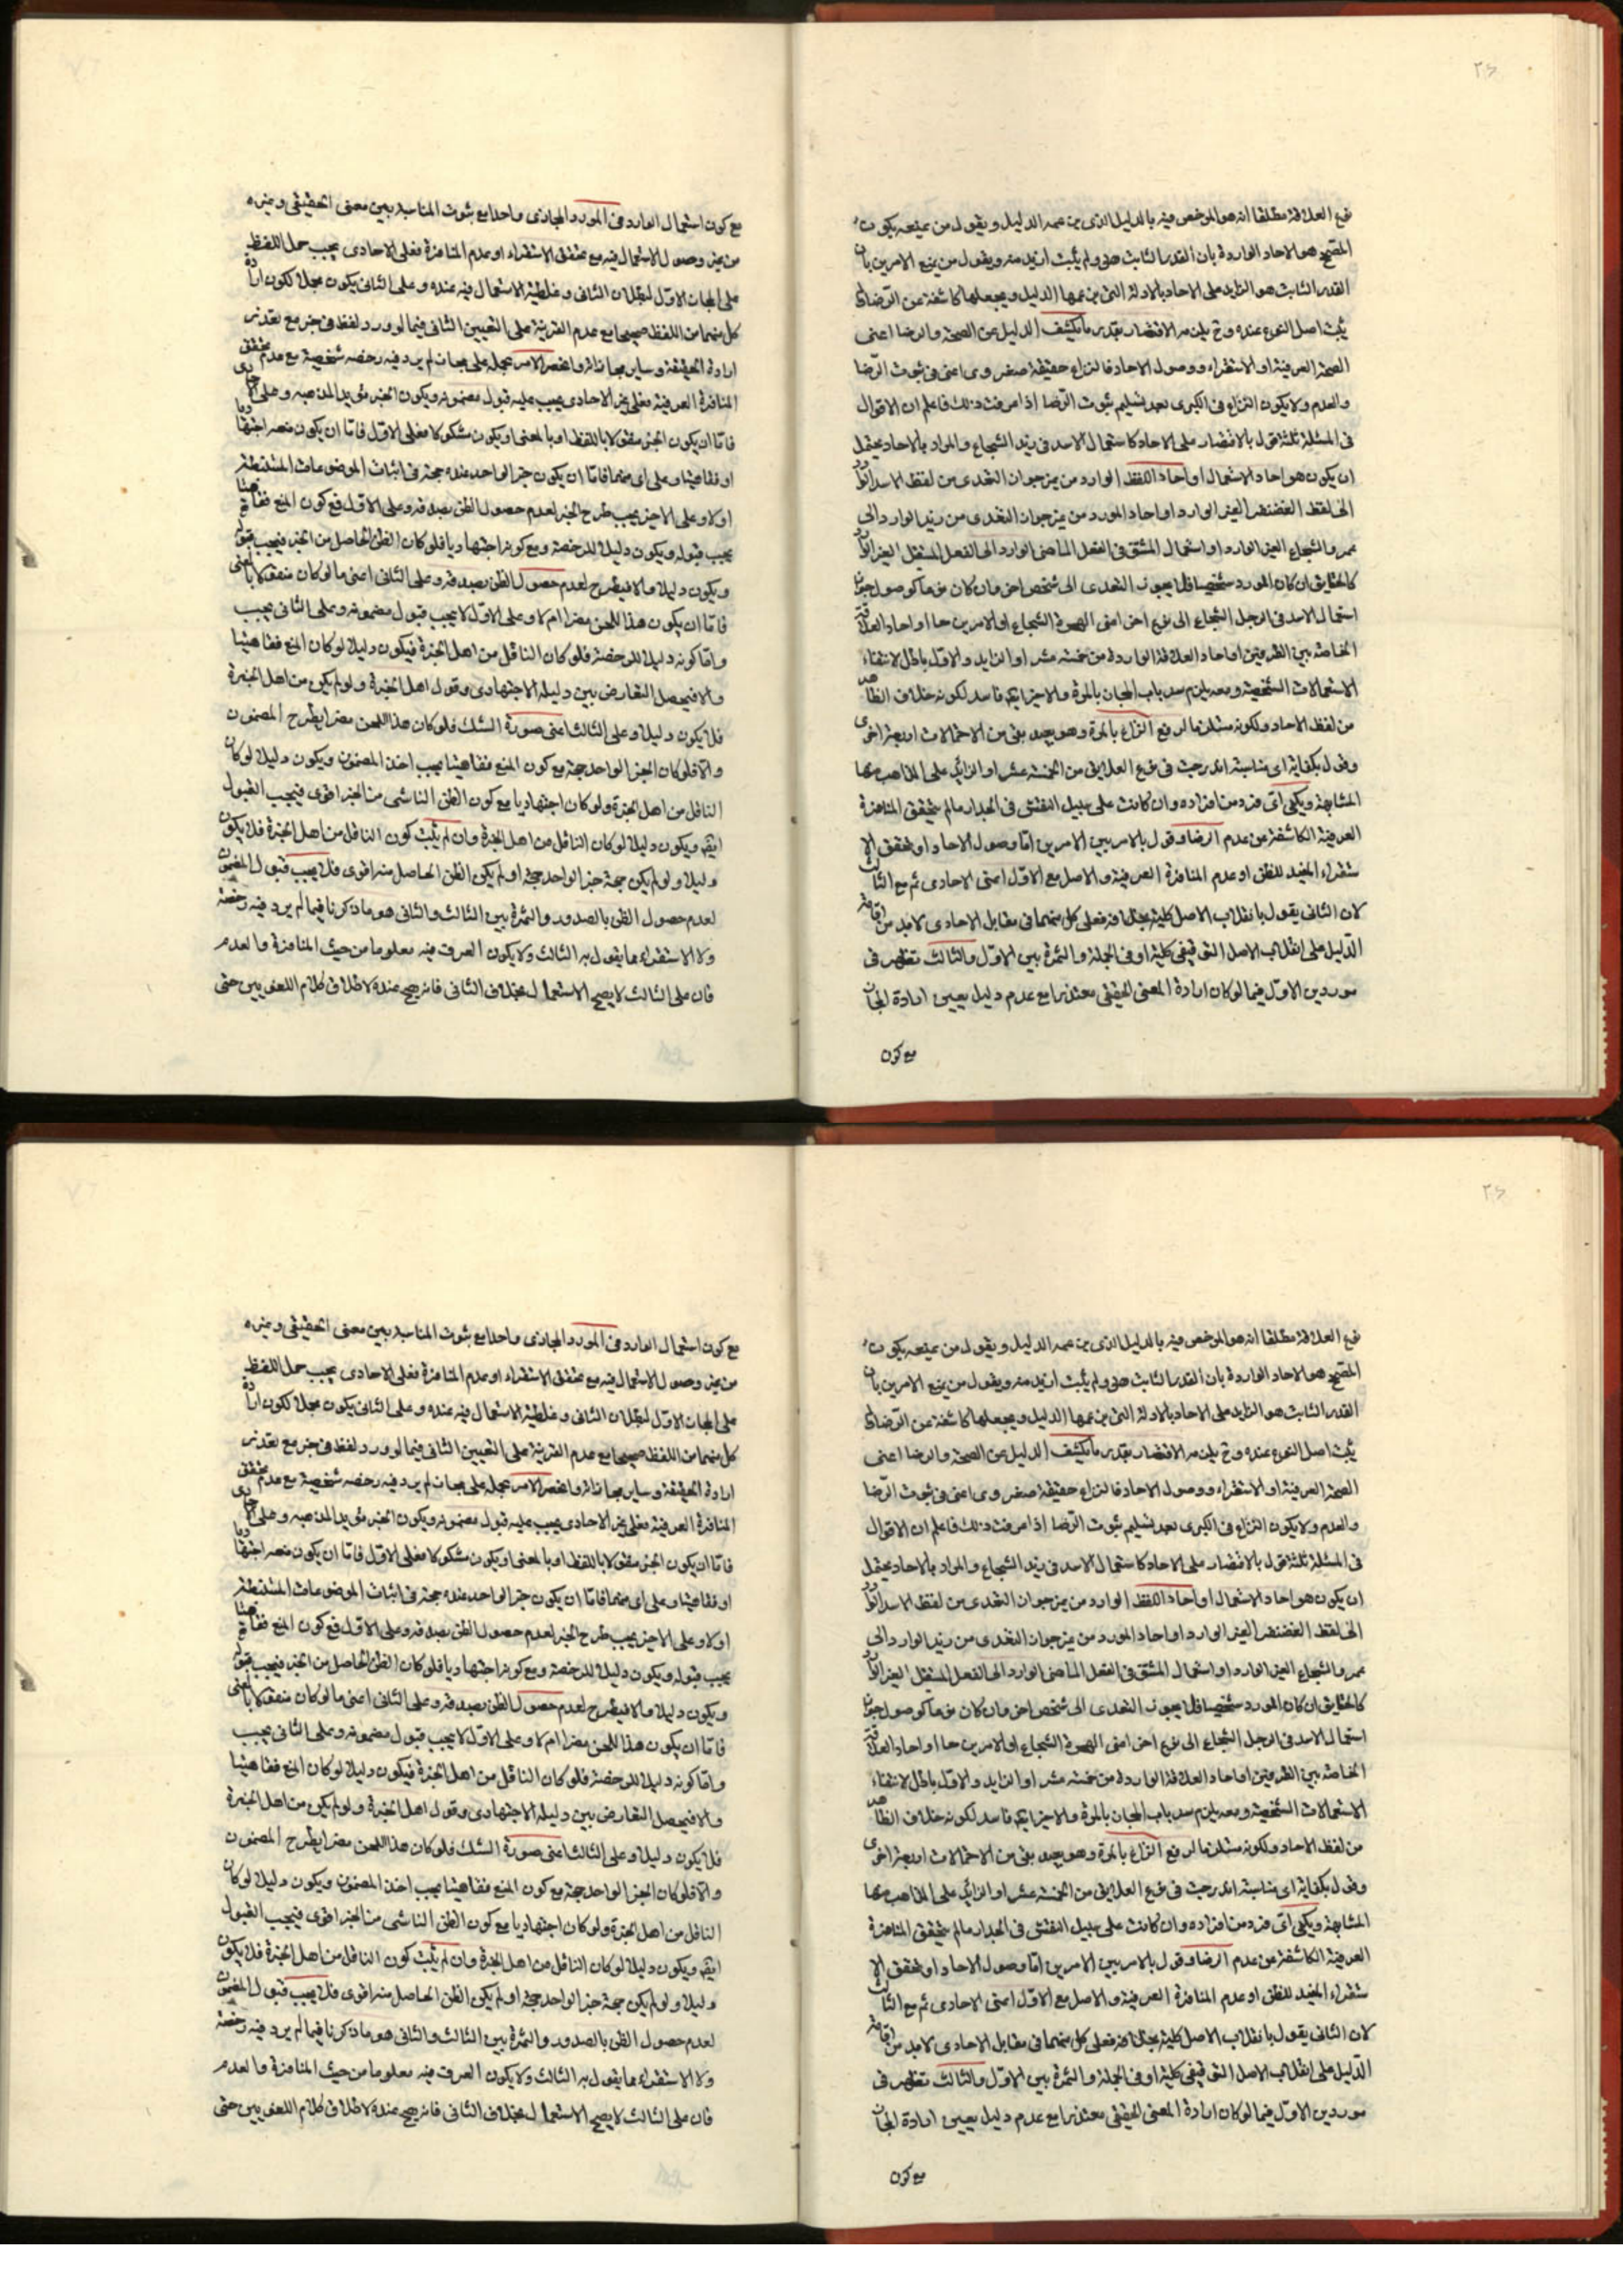 ٢٦
نوع العلاقة مطلقا انه هو المرخص فيه بالدليل الذى من عمه الدليل و يقول من يمنعه يكون
المتيقن هو الاحاد الواردة بان القدر الثابت هى ولم يثبت ازيد منه ويقول من يمنع الامرين بان
القدر الثابت هو الزايد على الاحاد بالادلة التى من عمها الدليل ويجعلها كاشفة عن الرضا
يثبت اصل النوع عنده وح يلزمه الاقتصار بقدر ما يكشف الدليل عن الصحة والرضا اعنى
الصحة العرفية او الاستقراء ووصول الاحاد فالنزاع حقيقة صغروى اعنى فى ثبوت الرضا
والعدم ولا يكون النزاع فى الكبرى بعد تسليم ثبوت الرضا اذا عرفت ذلك فاعلم ان الاقوال
فى المسئلة ثلثة قول بالاقتصار على الاحاد كاستعمال الاسد فى زيد الشجاع والمراد بالاحاد يحتمل
ان يكون هو احاد الاستعمال او احاد اللفظ الوارد من غير جواز التعدى من لفظ الاسد الوارد
الى لفظ الغضنفر الغير الوارد او احاد المورد من غير جواز التعدى من زيد الوارد الى
عمرو الشجاع الغير الوارد او استعمال المشتق فى الفعل الماضى الوارد الى الفعل المستقبل الغير الوارد
كالحقايق ان كان المورد شخصيا فلا يجوز التعدى الى شخص اخر وان كان نوعا كوصول جواز
استعمال الاسد فى الرجل الشجاع الى نوع اخر اعنى الهمرة الشجاع او الامرين معا او احاد العلاقة
الخاصة بين الطرفين او احاد العلاقة الواردة من خمسة عشر او ازيد والاول باطل لانتفاء
الاستعمالات الشخصية ومعه يلزم سد باب المجاز بالمرة والاخير ايضا فاسد لكونه خلاف الظاهر
من لفظ الاحاد ولكونه مستلزما لرفع النزاع بالمرة وهو بعيد بقى من الاحتمالات اربعة اخرى
وقول بكفاية اى مناسبة اندرجت فى نوع العلايق من الخمسة عشر او الزايد على المذاهب منها
المشابهة ويكفى اى فرد من افراده وان كانت على سبيل النقش فى الجدار ما لم يتحقق المنافرة
العرفية الكاشفة عن عدم الرضا وقول بالامر بين الامرين اما وصول الاحاد او تحقق الا
ستقراء المفيد للظن او عدم المنافرة العرفية والاصل مع الاول اعنى الاحادى ثم مع الثالث
لان الثانى يقول بانقلاب الاصل كلية بخلافه فعلى كل منهما فى مقابل الاحادى لابد من اقامة
الدليل على انقلاب الاصل التوقيفى كلية او فى الجملة والثمرة بين الاول والثالث تظهر فى
موردين الاول فيما لو كان ارادة المعنى الحقيقى متعذرا مع عدم دليل يعين ارادة المجاز
مع كون
مع كون استعمال الوارد فى المورد المجازى واحدا مع ثبوت المناسبة بين معنى الحقيقى وغيره
من غير وصول الاستعمال فيه مع تحقق الاستقراء او عدم المنافرة فعلى الاحادى يجب حمل اللفظ
على المجاز الاول لبطلان الثانى و غلطية الاستعمال فيه عنده وعلى الثانى يكون مجملا لكون ارادة
كل منهما من اللفظ صحيحا مع عدم القرينة على التعيين الثانى فيما لو ورد لفظ فى خبر مع تعذر
ارادة الحقيقة وساير مجازاته وانحصر الامر بحمله على مجاز لم يرد فيه رخصة شخصية مع عدم تحقق
المنافرة العرفية فعلى غير الاحادى يجب عليه قبول مضمونه ويكون الخبر مؤيدا لمذهبه وعلى الاحادى
فاما ان يكون الخبر منقولا باللفظ او بالمعنى او يكون مشكوكا فعلى الاول فاما ان يكون منعه اجتهاديا
او فقاهيا وعلى اى منهما فاما ان يكون خبر الواحد عنده حجة فى اثبات الموضوعات المستنبطة
اولا وعلى الاخير يجب طرح الخبر لعدم حصول الظن بصدقه وعلى الاول فمع كون المنع فقاهيتا
يجب قبوله ويكون دليلا للرخصة ومع كونه اجتهاديا فلو كان الظن الحاصل من الخبر فيجب قبوله
ويكون دليلا والا فيطرح لعدم حصول الظن بصدقه وعلى الثانى اعنى ما لو كان منقولا بالمعنى
فاما ان يكون هذا اللحن مضرا ام لا وعلى الاول لا يجب قبول مضمونه وعلى الثانى يجب
واما كونه دليلا للرخصة فلو كان الناقل من اهل الخبرة فيكون دليلا لو كان المنع فقاهيتا
والا فيحصل التعارض بين دليله الاجتهادى وقول اهل الخبرة ولو لم يكن من اهل الخبرة
فلا يكون دليلا وعلى الثالث اعنى صورة الشك فلو كان هذا اللحن مضرا يطرح المضمون
والا فلو كان الخبر الواحد حجة مع كون المنع فقاهيتا يجب اخذ المضمون ويكون دليلا لو كان
الناقل من اهل الخبرة ولو كان اجتهاديا مع كون الظن الناشى من الخبر اقوى فيجب القبول
ايضا ويكون دليلا لو كان الناقل من اهل الخبرة وان لم يثبت كون الناقل من اهل الخبرة فلا يكون
دليلا ولو لم يكن حجة خبر الواحد حجة او لم يكن الظن الحاصل منه اقوى فلا يجب قبول المضمون
لعدم حصول الظن بالصدور والثمرة بين الثالث والثانى هو ما ذكرنا فيما لم يرد فيه رخصة
ولا الاستقراء مما يقول به الثالث ولا يكون العرف فيه معلوما من حيث المنافرة والعدم
فان على الثالث لا يصح الاستعمال بخلاف الثانى فانه يصح عنده لاطلاق كلام اللغويين حتى
٢٦
نوع العلاقة مطلقا انه هو المرخص فيه بالدليل الذى من عمه الدليل و يقول من يمنعه يكون
المتيقن هو الاحاد الواردة بان القدر الثابت هى ولم يثبت ازيد منه ويقول من يمنع الامرين بان
القدر الثابت هو الزايد على الاحاد بالادلة التى من عمها الدليل ويجعلها كاشفة عن الرضا
يثبت اصل النوع عنده وح يلزمه الاقتصار بقدر ما يكشف الدليل عن الصحة والرضا اعنى
الصحة العرفية او الاستقراء ووصول الاحاد فالنزاع حقيقة صغروى اعنى فى ثبوت الرضا
والعدم ولا يكون النزاع فى الكبرى بعد تسليم ثبوت الرضا اذا عرفت ذلك فاعلم ان الاقوال
فى المسئلة ثلثة قول بالاقتصار على الاحاد كاستعمال الاسد فى زيد الشجاع والمراد بالاحاد يحتمل
ان يكون هو احاد الاستعمال او احاد اللفظ الوارد من غير جواز التعدى من لفظ الاسد الوارد
الى لفظ الغضنفر الغير الوارد او احاد المورد من غير جواز التعدى من زيد الوارد الى
عمرو الشجاع الغير الوارد او استعمال المشتق فى الفعل الماضى الوارد الى الفعل المستقبل الغير الوارد
كالحقايق ان كان المورد شخصيا فلا يجوز التعدى الى شخص اخر وان كان نوعا كوصول جواز
استعمال الاسد فى الرجل الشجاع الى نوع اخر اعنى الهمرة الشجاع او الامرين معا او احاد العلاقة
الخاصة بين الطرفين او احاد العلاقة الواردة من خمسة عشر او ازيد والاول باطل لانتفاء
الاستعمالات الشخصية ومعه يلزم سد باب المجاز بالمرة والاخير ايضا فاسد لكونه خلاف الظاهر
من لفظ الاحاد ولكونه مستلزما لرفع النزاع بالمرة وهو بعيد بقى من الاحتمالات اربعة اخرى
وقول بكفاية اى مناسبة اندرجت فى نوع العلايق من الخمسة عشر او الزايد على المذاهب منها
المشابهة ويكفى اى فرد من افراده وان كانت على سبيل النقش فى الجدار ما لم يتحقق المنافرة
العرفية الكاشفة عن عدم الرضا وقول بالامر بين الامرين اما وصول الاحاد او تحقق الا
ستقراء المفيد للظن او عدم المنافرة العرفية والاصل مع الاول اعنى الاحادى ثم مع الثالث
لان الثانى يقول بانقلاب الاصل كلية بخلافه فعلى كل منهما فى مقابل الاحادى لابد من اقامة
الدليل على انقلاب الاصل التوقيفى كلية او فى الجملة والثمرة بين الاول والثالث تظهر فى
موردين الاول فيما لو كان ارادة المعنى الحقيقى متعذرا مع عدم دليل يعين ارادة المجاز
مع كون
مع كون استعمال الوارد فى المورد المجازى واحدا مع ثبوت المناسبة بين معنى الحقيقى وغيره
من غير وصول الاستعمال فيه مع تحقق الاستقراء او عدم المنافرة فعلى الاحادى يجب حمل اللفظ
على المجاز الاول لبطلان الثانى و غلطية الاستعمال فيه عنده وعلى الثانى يكون مجملا لكون ارادة
كل منهما من اللفظ صحيحا مع عدم القرينة على التعيين الثانى فيما لو ورد لفظ فى خبر مع تعذر
ارادة الحقيقة وساير مجازاته وانحصر الامر بحمله على مجاز لم يرد فيه رخصة شخصية مع عدم تحقق
المنافرة العرفية فعلى غير الاحادى يجب عليه قبول مضمونه ويكون الخبر مؤيدا لمذهبه وعلى الاحادى
فاما ان يكون الخبر منقولا باللفظ او بالمعنى او يكون مشكوكا فعلى الاول فاما ان يكون منعه اجتهاديا
او فقاهيا وعلى اى منهما فاما ان يكون خبر الواحد عنده حجة فى اثبات الموضوعات المستنبطة
اولا وعلى الاخير يجب طرح الخبر لعدم حصول الظن بصدقه وعلى الاول فمع كون المنع فقاهيتا
يجب قبوله ويكون دليلا للرخصة ومع كونه اجتهاديا فلو كان الظن الحاصل من الخبر فيجب قبوله
ويكون دليلا والا فيطرح لعدم حصول الظن بصدقه وعلى الثانى اعنى ما لو كان منقولا بالمعنى
فاما ان يكون هذا اللحن مضرا ام لا وعلى الاول لا يجب قبول مضمونه وعلى الثانى يجب
واما كونه دليلا للرخصة فلو كان الناقل من اهل الخبرة فيكون دليلا لو كان المنع فقاهيتا
والا فيحصل التعارض بين دليله الاجتهادى وقول اهل الخبرة ولو لم يكن من اهل الخبرة
فلا يكون دليلا وعلى الثالث اعنى صورة الشك فلو كان هذا اللحن مضرا يطرح المضمون
والا فلو كان الخبر الواحد حجة مع كون المنع فقاهيتا يجب اخذ المضمون ويكون دليلا لو كان
الناقل من اهل الخبرة ولو كان اجتهاديا مع كون الظن الناشى من الخبر اقوى فيجب القبول
ايضا ويكون دليلا لو كان الناقل من اهل الخبرة وان لم يثبت كون الناقل من اهل الخبرة فلا يكون
دليلا ولو لم يكن حجة خبر الواحد حجة او لم يكن الظن الحاصل منه اقوى فلا يجب قبول المضمون
لعدم حصول الظن بالصدور والثمرة بين الثالث والثانى هو ما ذكرنا فيما لم يرد فيه رخصة
ولا الاستقراء مما يقول به الثالث ولا يكون العرف فيه معلوما من حيث المنافرة والعدم
فان على الثالث لا يصح الاستعمال بخلاف الثانى فانه يصح عنده لاطلاق كلام اللغويين حتى